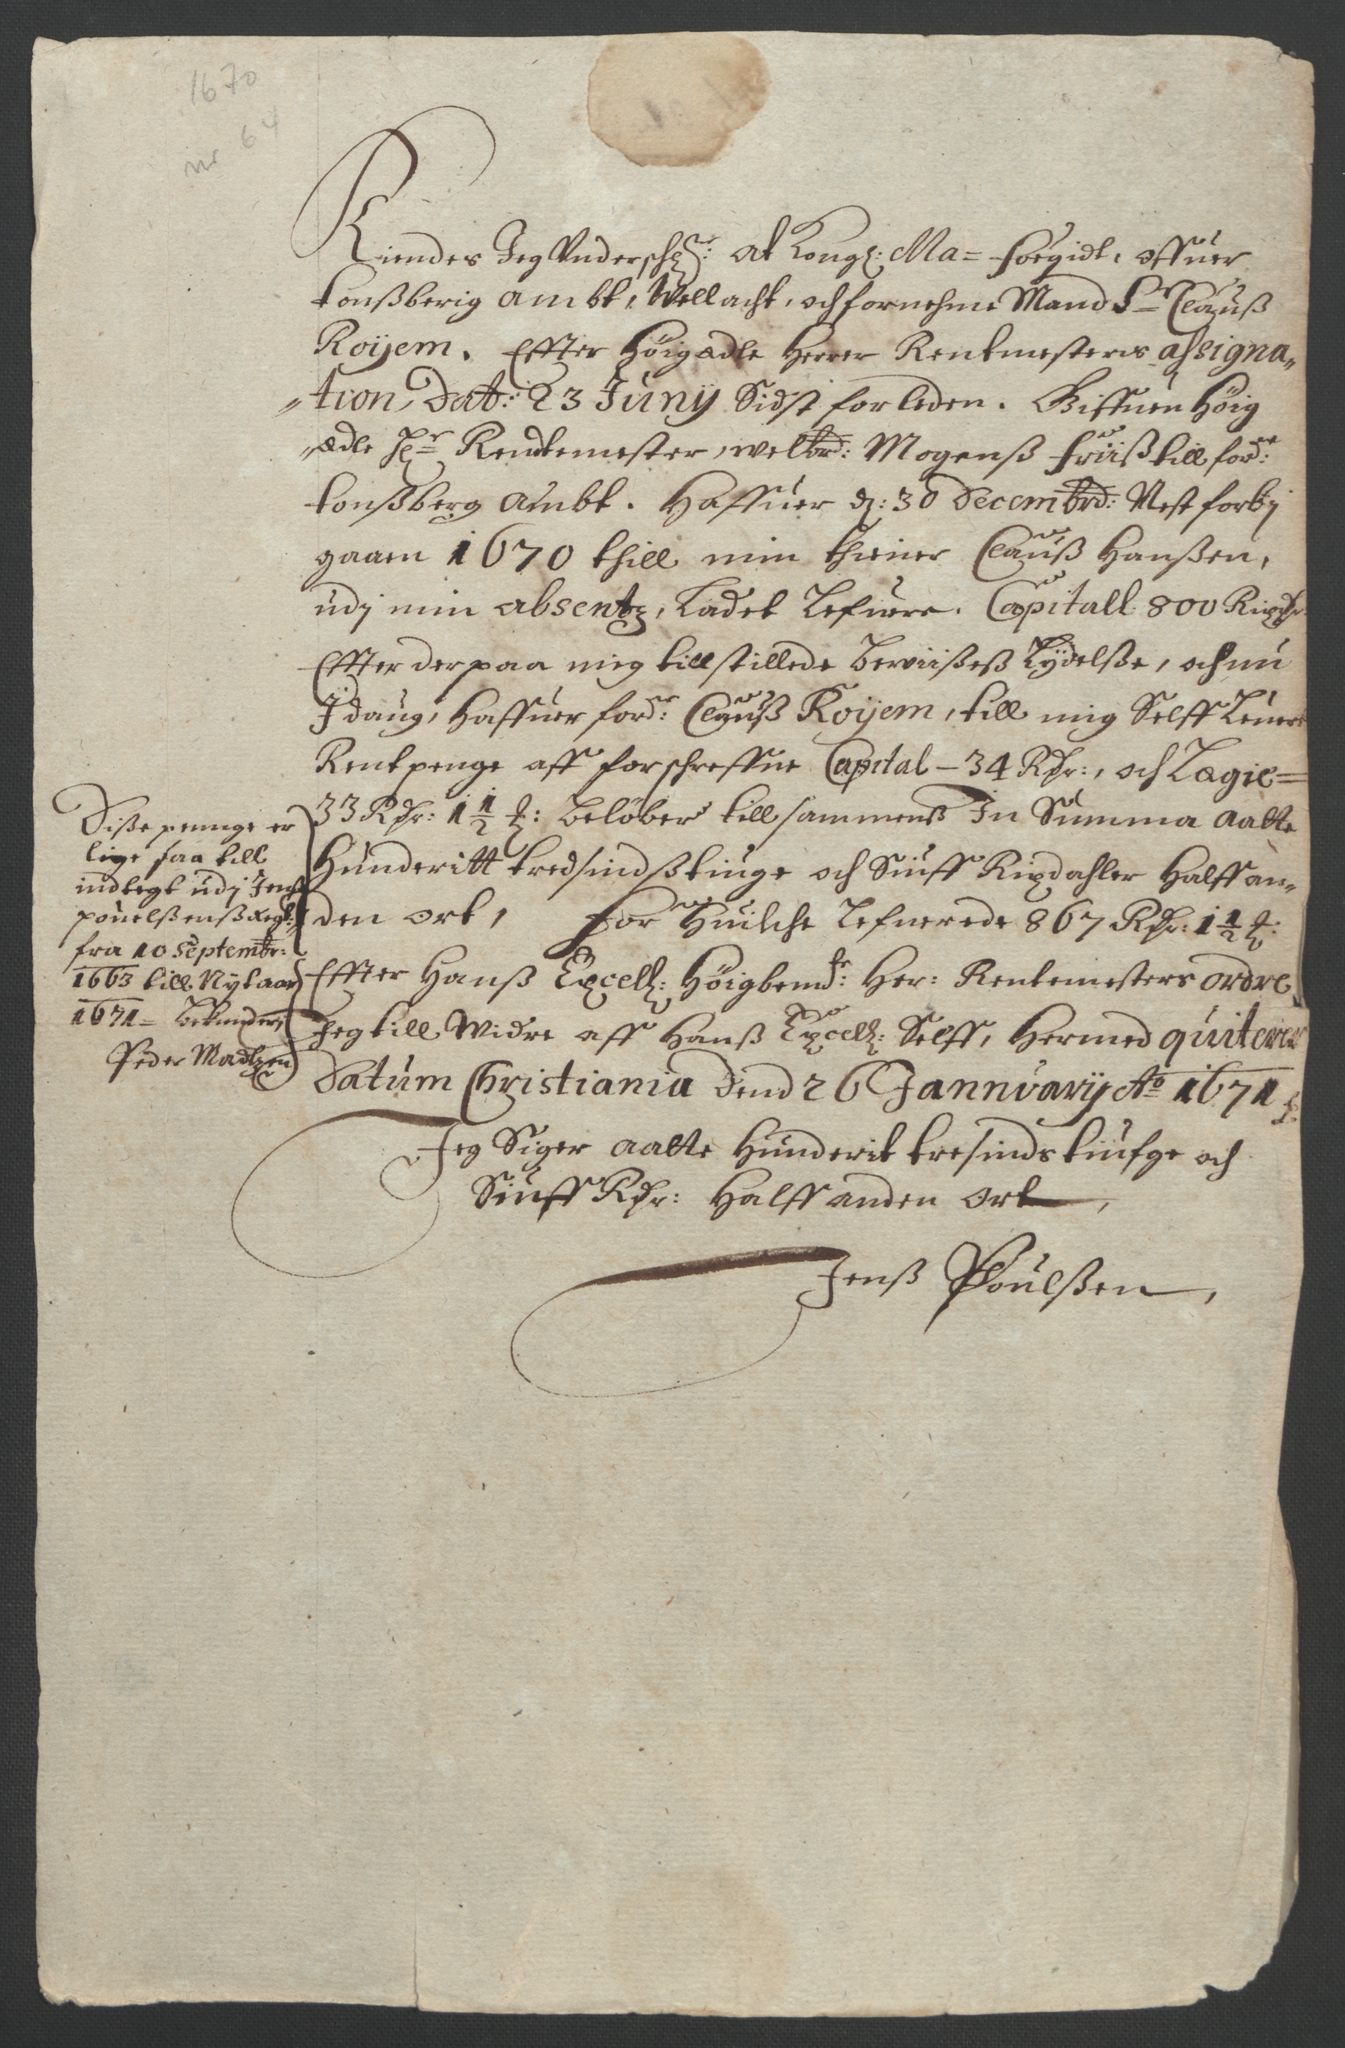 1670
nr 64
Kiendes Jeg Underschr: at Kongl: Ma= foegidt, offuer
tonßberig ambt, Wellacht, och fornehme Mand Sr Clauß
Roÿem. Effter Høigædle Herrer Rentmesters assigna„
„tion, Dat: 23 Junÿ Sidst forleden. Giffuen Høig
„ædle Hr Rentemester, welbrd: Mogenß friiß till ford:
tonßberg Ambt. Haffuer d: 30 Decembrd: Nest forbj
gaaen 1670 thill min thiener Clauß Hanßen,
udj min absentz, Ladet Lefuere. Capitall 800 Rixdr
Effter der paa mig till stillede Beviißeß Lydelße, och nu
J daug, Haffuer ford: Clauß Roÿem, till mig Selff Leuert
Rentpenge aff forschreffne Capital – 34 Rdr:, och Lægie=
33 Rdr: 1½ ℔: beløber till sammenß In Summa aatte
Hunderitt tredsindßtiuge och Siuff Rixdahler Halff an„
den ort, for Huilche Lefuerede 867 Rdr: 1½ ℔:
Effter Hanß Excell: Høigbemd: Her: Rentemesters ordre
Jeg till Widre aff Hanß Excell: Selff, Hermed quiterer
Datum Christiania Dend 26 Jannuarij Ao 1671
Jeg Siger aatte Hunderit tresindstiufge och
Siuff Rdr: Halff anden Ort,
Jenß Poulßen,
Diße penge er
lige saa till
indtegt udj Jenß
pouelßenß Regt:
fra 10 Septembr:
1663 till Nytaar
1671 = Bekiender
Peder Madtzen